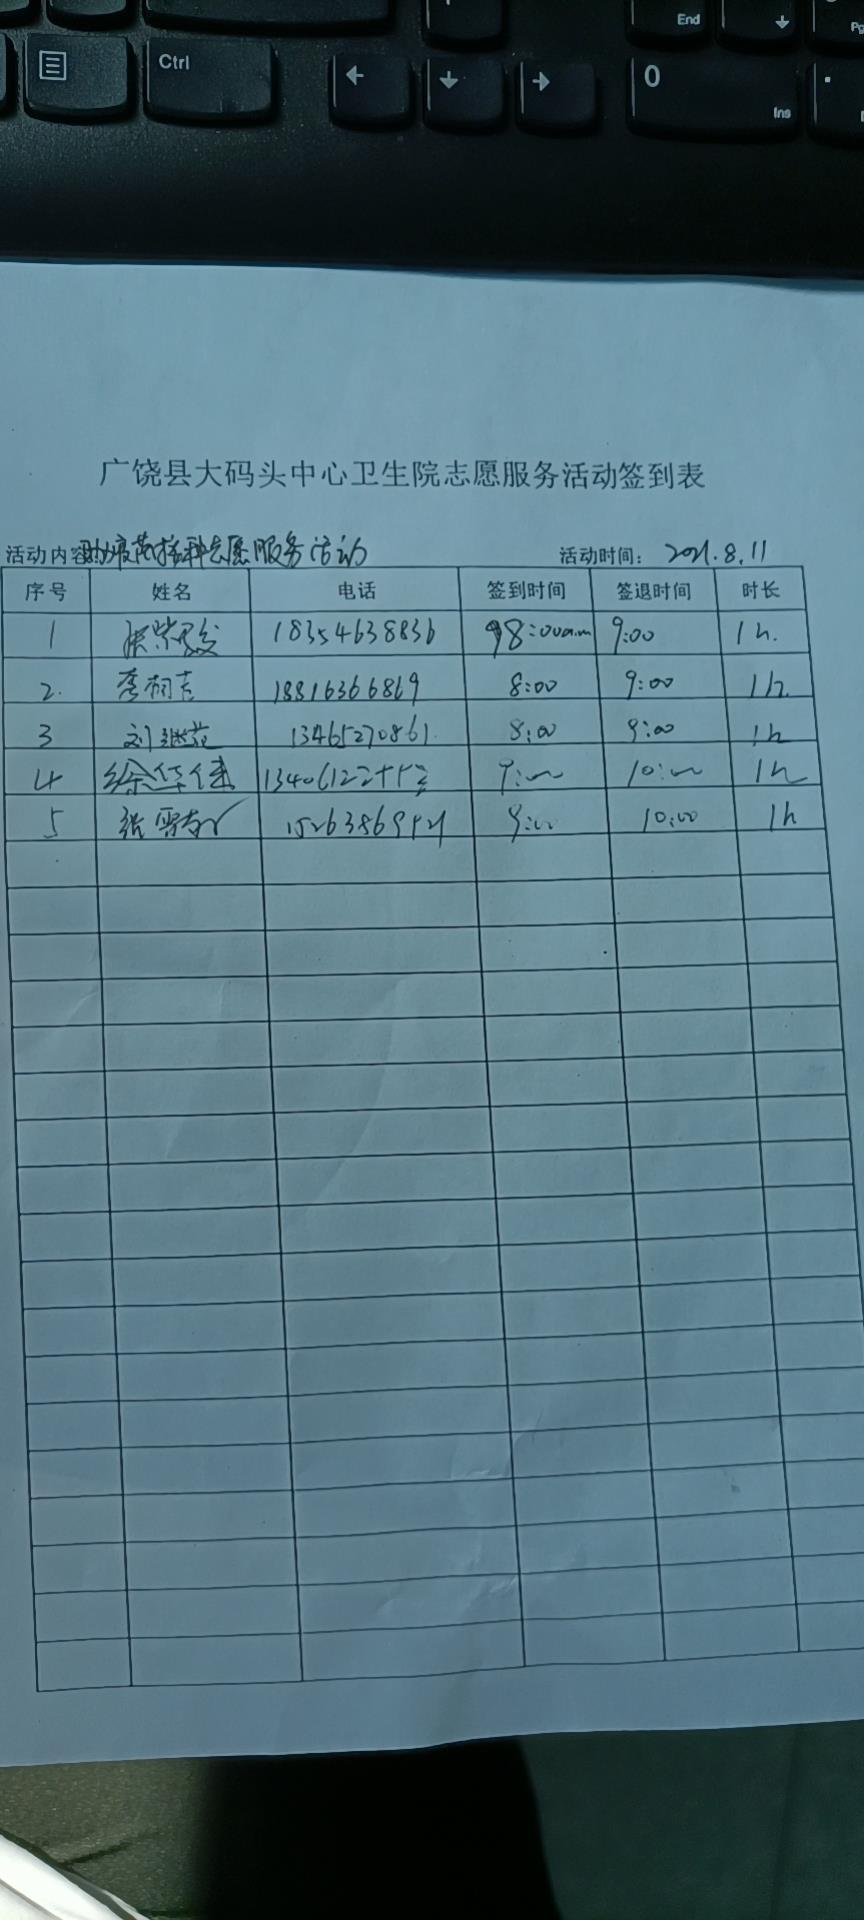 End
Ctrl
0
Ins
广饶县大码头中心卫生院志愿服务活动签到表
活动内容 助力疫苗接种志愿服务活动 活动时间： 2021.8.11
序号 姓名 电话 签到时间 签退时间 时长
1 18354638836 8:00a.m 9:00 1h.
2. 18816366869 8:00 9:00 1h.
3 刘 13465270861. 8:00 9:00 1h
4 徐华健 9:00 10:00 1h
5 张雪 9:00 10:00 1h